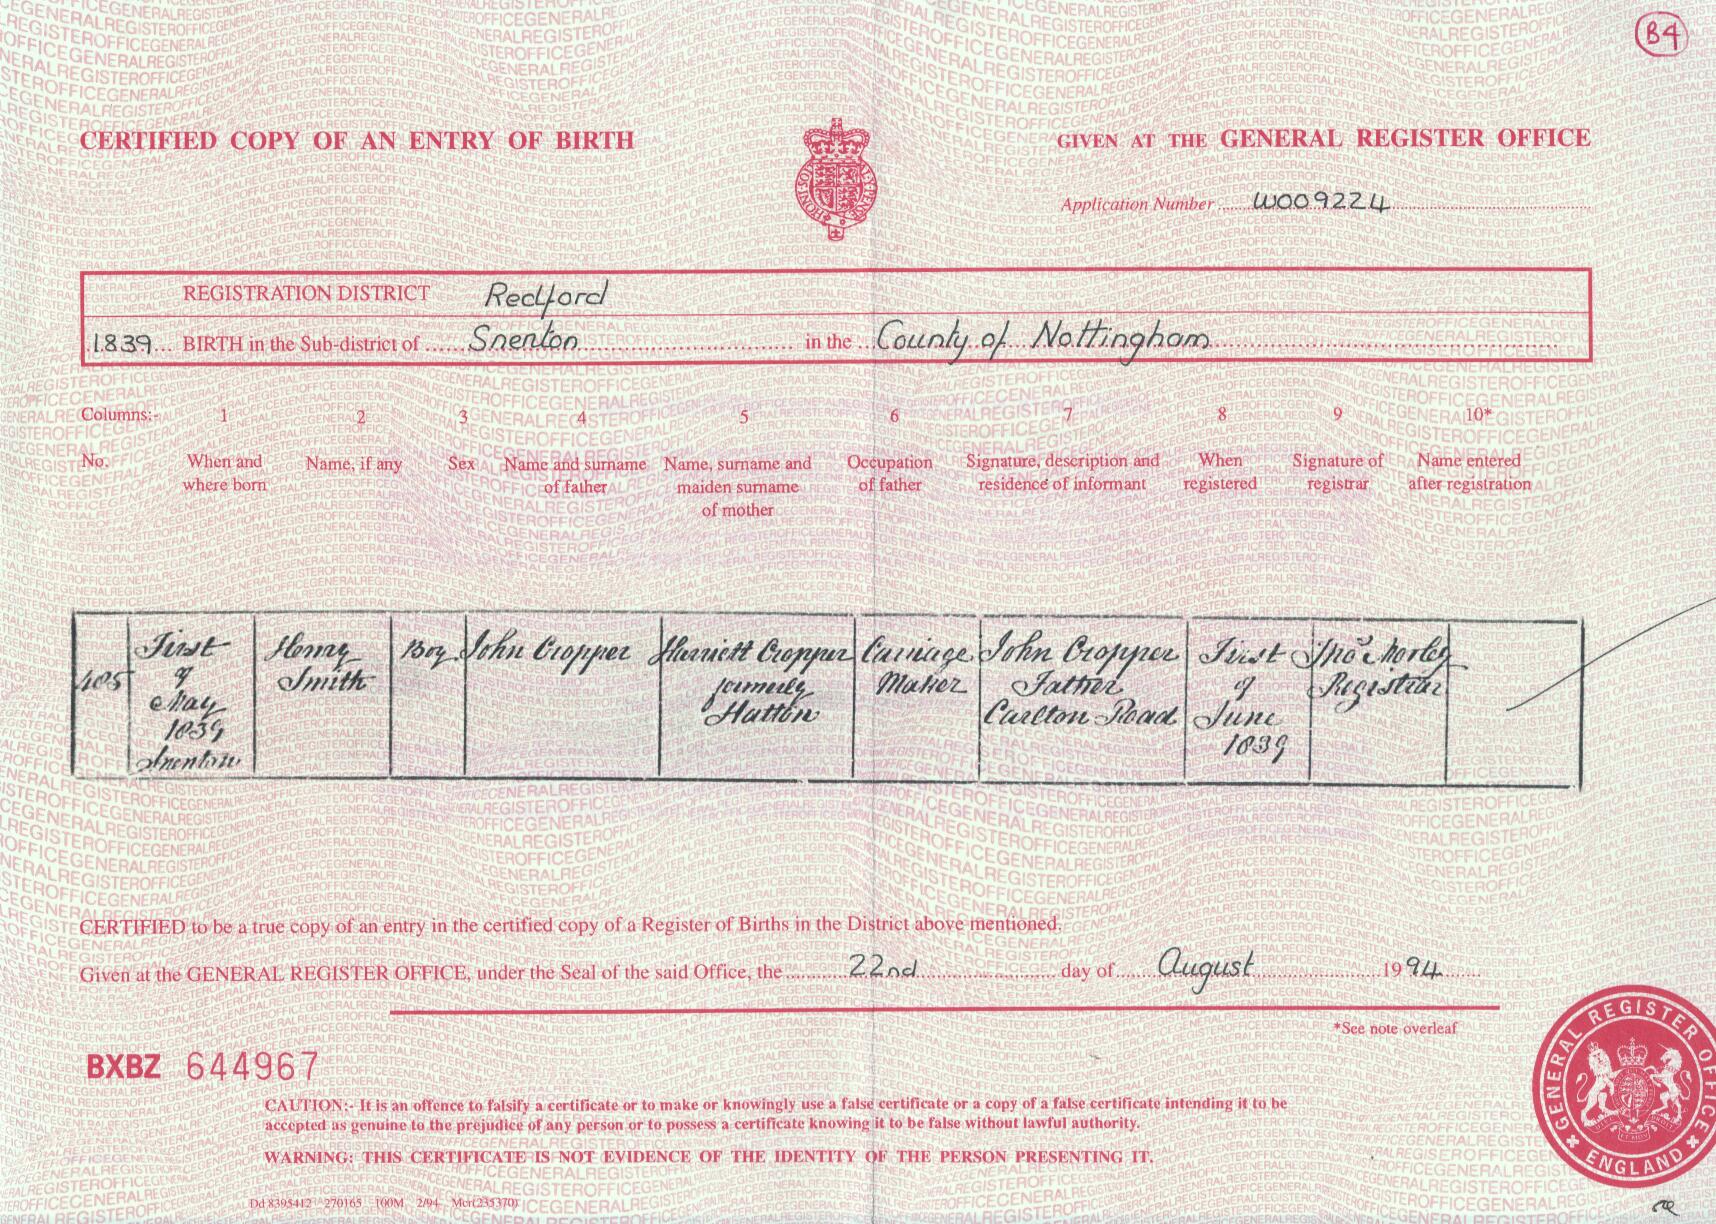 B4
CERTIFIED COPY OF AN ENTRY OF BIRTH
GIVEN AT THE GENERAL REGISTER OFFICE
Application Number W009224
REGISTRATION DISTRICT Radford
1839 BIRTH in the Sub-district of Snenton in the County of Nottingham
Columns:- 1 2 3 4 5 6 7 8 9 10*
No. When and Name, if any Sex Name and surname Name, surname and Occupation Signature, description and When Signature of Name entered
where born of father maiden surname of father residence of informant registered registrar after registration
of mother
405 First Henry Boy John Cropper Harriett Cropper Carriage John Cropper First Thos Morley
of Smith formerly Maker Father of Registrar
May Hutton Carlton Road June
1839 1839
Snenton
CERTIFIED to be a true copy of an entry in the certified copy of a Register of Births in the District above mentioned.
Given at the GENERAL REGISTER OFFICE, under the Seal of the said Office, the 22nd day of August 1994
*See note overleaf
BXBZ 644967
CAUTION:- It is an offence to falsify a certificate or to make or knowingly use a false certificate or a copy of a false certificate intending it to be
accepted as genuine to the prejudice of any person or to possess a certificate knowing it to be false without lawful authority.
WARNING: THIS CERTIFICATE IS NOT EVIDENCE OF THE IDENTITY OF THE PERSON PRESENTING IT.
Dd 8395412 270165 100M 2/94 Mcr(235370)
GENERAL REGISTER OFFICE
ENGLAND